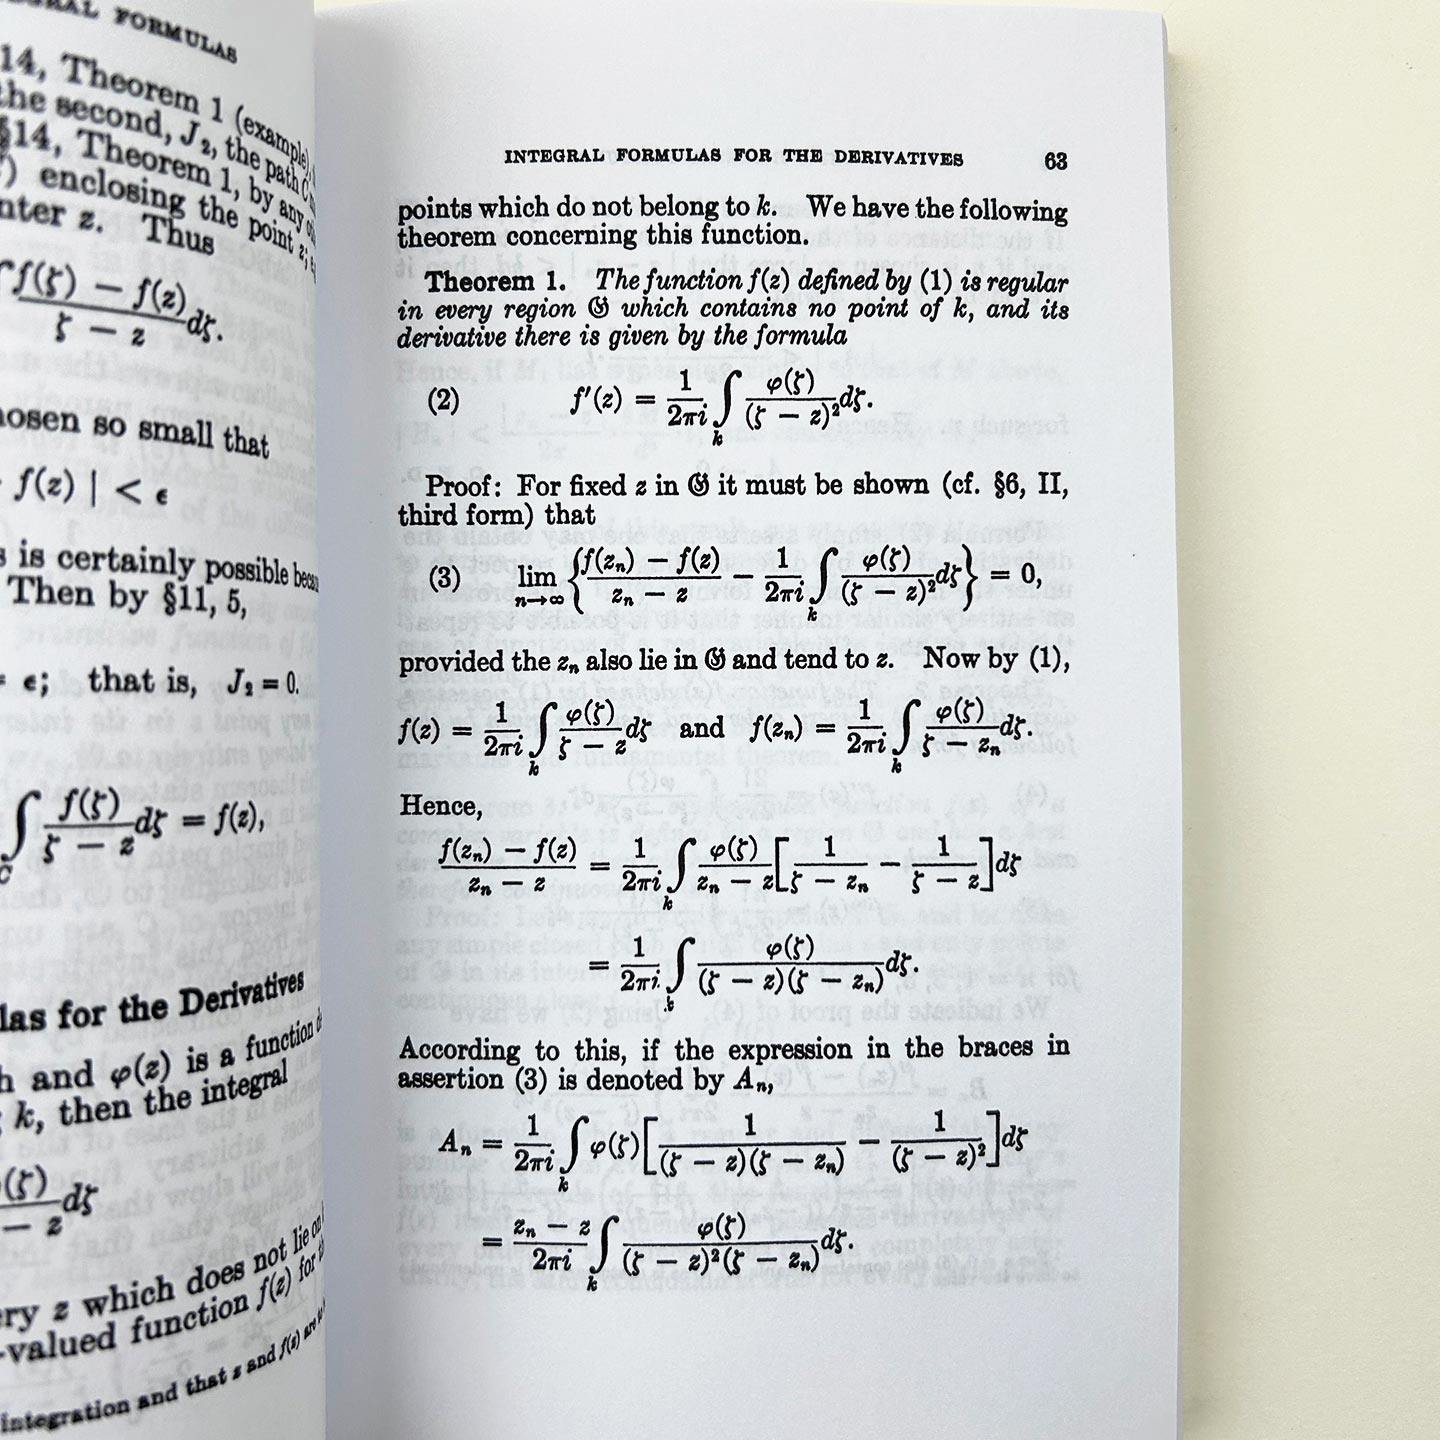 FORMULAS
14, Theorem 1 (example),
the second, J₂, the path C
§14, Theorem 1, by any
enclosing the point z;
z. Thus
f(ζ) − f(z)
ζ − z dζ.
so small that
f(z) | < ϵ
is certainly possible
Then by §11, 5,
ϵ; that is, J₂ = 0.
∫ f(ζ)/(ζ − z) dζ = f(z),
C
for the Derivatives
and φ(z) is a function
k, then the integral
(ζ)/(− z) dζ
z which does not lie on
-valued function f(z) for
integration and that z and f(z) are to
INTEGRAL FORMULAS FOR THE DERIVATIVES 63
points which do not belong to k. We have the following
theorem concerning this function.
Theorem 1. The function f(z) defined by (1) is regular
in every region 𝔊 which contains no point of k, and its
derivative there is given by the formula
(2) f′(z) = 1/(2πi) ∫_k φ(ζ)/(ζ − z)² dζ.
Proof: For fixed z in 𝔊 it must be shown (cf. §6, II,
third form) that
(3) lim_{n→∞} { (f(zₙ) − f(z))/(zₙ − z) − 1/(2πi) ∫_k φ(ζ)/(ζ − z)² dζ } = 0,
provided the zₙ also lie in 𝔊 and tend to z. Now by (1),
f(z) = 1/(2πi) ∫_k φ(ζ)/(ζ − z) dζ and f(zₙ) = 1/(2πi) ∫_k φ(ζ)/(ζ − zₙ) dζ.
Hence,
(f(zₙ) − f(z))/(zₙ − z) = 1/(2πi) ∫_k φ(ζ)/(zₙ − z) [ 1/(ζ − zₙ) − 1/(ζ − z) ] dζ
= 1/(2πi) ∫_k φ(ζ)/((ζ − z)(ζ − zₙ)) dζ.
According to this, if the expression in the braces in
assertion (3) is denoted by Aₙ,
Aₙ = 1/(2πi) ∫_k φ(ζ) [ 1/((ζ − z)(ζ − zₙ)) − 1/(ζ − z)² ] dζ
= (zₙ − z)/(2πi) ∫_k φ(ζ)/((ζ − z)²(ζ − zₙ)) dζ.